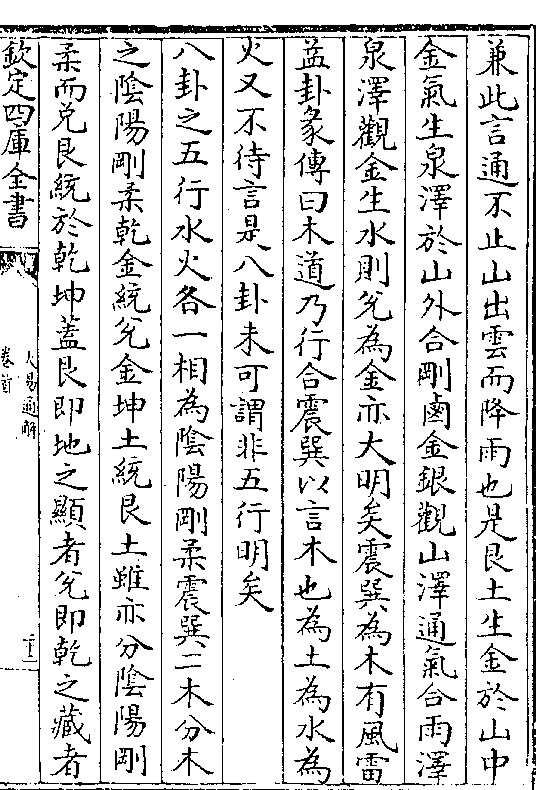 兼此言通不止山出雲而降雨也是艮土生金於山中
金氣生泉澤於山外合剛鹵金銀觀山澤通氣合雨澤
泉澤觀金生水則兌為金亦大明矣震巽為木有風雷
益卦彖傳曰木道乃行合震巽以言木也為土為水為
火又不待言是八卦未可謂非五行明矣
八卦之五行水火各一相為陰陽剛柔震巽二木分木
之陰陽剛柔乾金統兌金坤土統艮土雖亦分陰陽剛
柔而兌艮統於乾坤蓋艮即地之顯者兌即乾之藏者
欽定四庫全書
大易通解
卷首